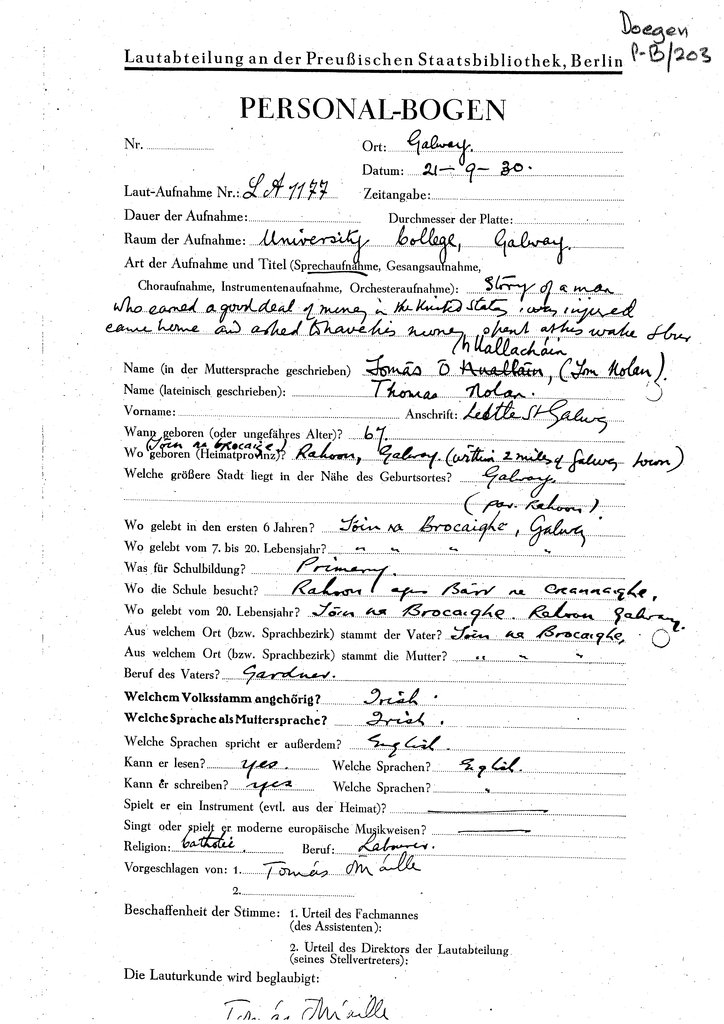 Doegen
Lautabteilung an der Preußischen Staatsbibliothek, Berlin
P-B/203
PERSONAL-BOGEN
Nr. Ort: Galway.
Datum: 21-9-30.
Laut-Aufnahme Nr.: LA 1177 Zeitangabe:
Dauer der Aufnahme: Durchmesser der Platte:
Raum der Aufnahme: University College, Galway.
Art der Aufnahme und Titel (Sprechaufnahme, Gesangsaufnahme,
Choraufnahme, Instrumentenaufnahme, Orchesteraufnahme): Story of a man
who earned a good deal of money in the United States, was injured
came home and asked to have his money spent at his wake
h-Uallacháin
Name (in der Muttersprache geschrieben) Tomás Ó Hualláin, (Tom Nolan).
Name (lateinisch geschrieben): Thomas Nolan.
Vorname: Anschrift: St Galway
Wann geboren (oder ungefähres Alter)? 67.
(Tóin na Brocaighe)
Wo geboren (Heimatprovinz)? Rahoon, Galway. (within 2 miles of Galway town)
Welche größere Stadt liegt in der Nähe des Geburtsortes? Galway.
(par. Rahoon)
Wo gelebt in den ersten 6 Jahren? Tóin na Brocaighe, Galway
Wo gelebt vom 7. bis 20. Lebensjahr? " " " "
Was für Schulbildung? Primary.
Wo die Schule besucht? Rahoon agus Bárr na Crannaighe.
Wo gelebt vom 20. Lebensjahr? Tóin na Brocaighe. Rahoon Galway.
Aus welchem Ort (bzw. Sprachbezirk) stammt der Vater? Tóin na Brocaighe.
Aus welchem Ort (bzw. Sprachbezirk) stammt die Mutter? " " "
Beruf des Vaters? Gardner.
Welchem Volksstamm angehörig? Irish.
Welche Sprache als Muttersprache? Irish.
Welche Sprachen spricht er außerdem? English.
Kann er lesen? yes. Welche Sprachen? English.
Kann er schreiben? yes Welche Sprachen? "
Spielt er ein Instrument (evtl. aus der Heimat)?
Singt oder spielt er moderne europäische Musikweisen?
Religion: Catholic. Beruf: Labourer.
Vorgeschlagen von: 1. Tomás Ó Máille
2.
Beschaffenheit der Stimme: 1. Urteil des Fachmannes
(des Assistenten):
2. Urteil des Direktors der Lautabteilung
(seines Stellvertreters):
Die Lauturkunde wird beglaubigt:
Tomás Ó Máille